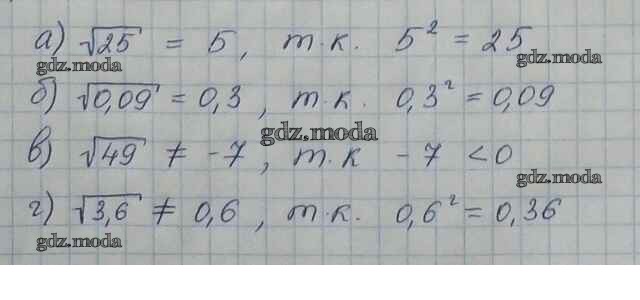 а) √25 = 5, т.к. 5² = 25
gdz.moda gdz.moda
б) √0,09 = 0,3, т.к. 0,3² = 0,09
gdz.moda
в) √49 ≠ -7, т.к -7 < 0
gdz.moda
г) √3,6 ≠ 0,6, т.к. 0,6² = 0,36
gdz.moda